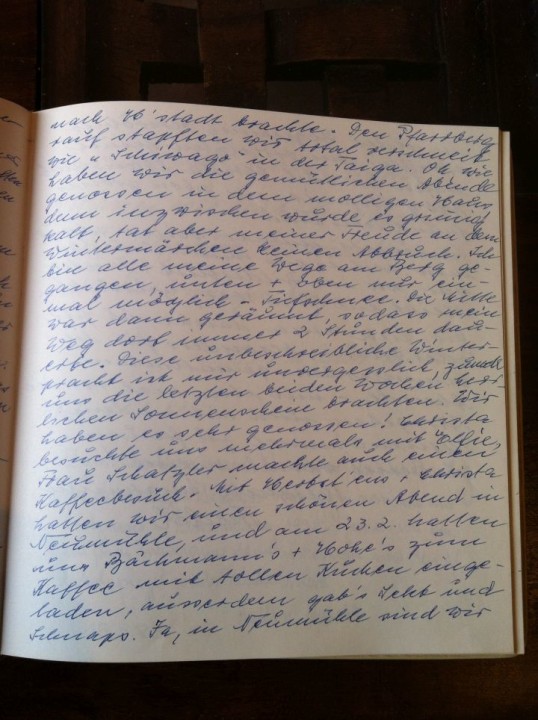 nach H'stadt brachte. Den Pfarrberg
rauf stapften wir total verschneit
wie „Schiwago" in der Taiga. Oh wie
haben wir die gemütlichen Abende
genossen in dem molligen Haus
denn inzwischen wurde es grimmig
kalt, tat aber meiner Freude an dem
Wintermärchen keinen Abbruch. Ich
bin alle meine Wege am Berg ge-
gangen, unten + oben nur ein-
mal möglich - Tiefschnee. Die Mitte
war dann geräumt, sodass mein
Weg dort immer 2 Stunden dau-
erte. Diese unbeschreibliche Winter-
pracht ist mir unvergesslich, zumal
uns die letzten beiden Wochen herr-
lichen Sonnenschein brachten. Wir
haben es sehr genossen! Christa
besuchte uns mehrmals mit Elfie,
Frau Schatzler machte auch einen
Kaffeebesuch. Mit Herbst'ens + Christa
hatten wir einen schönen Abend in
Neumühle, und am 23.2. hatten
uns Bächmann's + Hohe's zum
Kaffee mit tollen Kuchen einge-
laden, ausserdem gab's Sekt und
Schnaps. Ja, in Neumühle sind wir